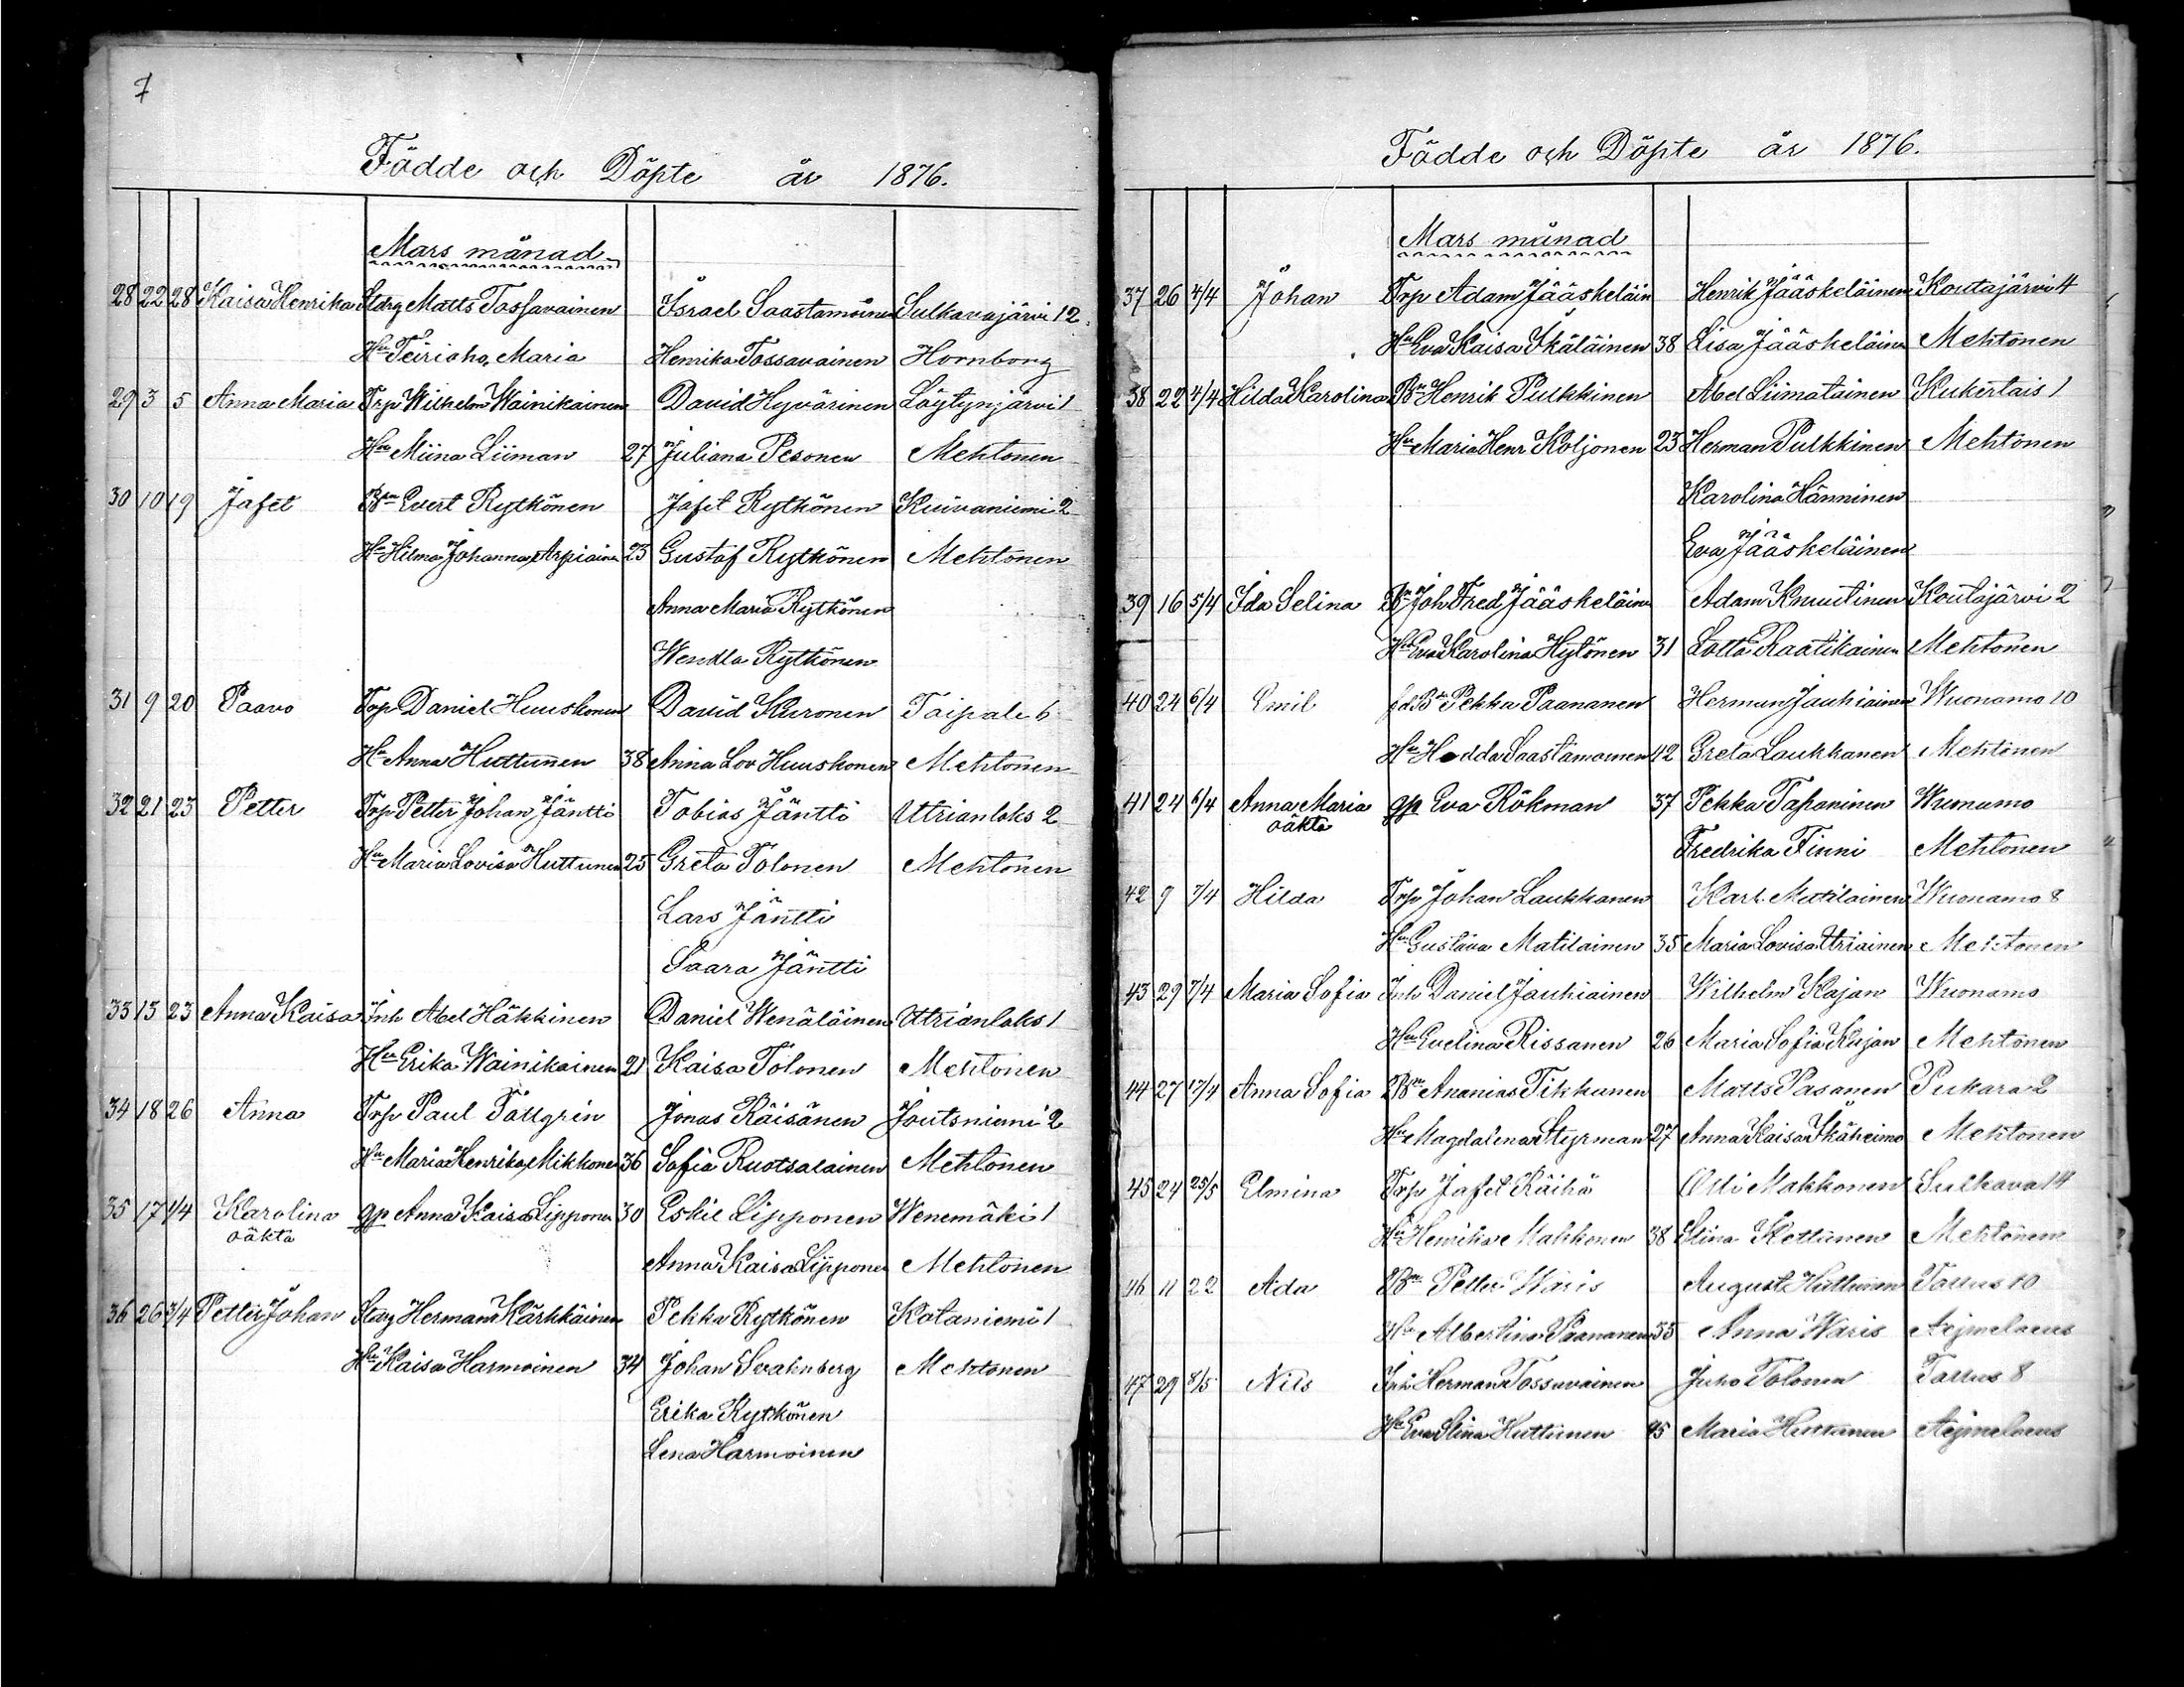 7
Födde och Döpte år 1876.
Mars månad
28 22 28 Kaisa Henrika Stdrg Matts Tossavainen Israel Saastamoinen Sulkavajärvi 12
Hu Teirioho, Maria Henrika Tossavainen Hornborg
29 3 5 Anna Maria Trp Wilhelm Wainikainen David Hyvärinen Löytynjärvi 1
Hu Miina Liiman 27 Juliana Pesonen Mehtonen
30 10 19 Jafet Bn Evert Rytkönen Jafet Rytkönen Kuivaniemi 2
Hu Hilma Johanna Arpiainen 23 Gustaf Rytkönen Mehtonen
Anna Maria Rytkönen
Wendla Rytkönen
31 9 20 Paavo Trp Daniel Huuskonen David Kuronen Taipale 6
Hu Anna Huttunen 38 Anna Lov Huuskonen Mehtonen
32 21 23 Petter Trp Petter Johan Jäntti Tobias Jäntti Utrianlaks 2
Hu Maria Lovisa Huttunen 25 Greta Tolonen Mehtonen
Lars Jäntti
Saara Jäntti
33 15 23 Anna Kaisa Inh Abel Häkkinen Daniel Wenäläinen Utrianlaks 1
Hu Erika Wainikainen 21 Kaisa Tolonen Mehtonen
34 18 26 Anna Trp Paul Tallgrin Jonas Räisänen Joutsniemi 2
Hu Maria Henrika Mikkonen 36 Sofia Ruotsalainen Mehtonen
35 17 1/4 Karolina gp Anna Kaisa Lipponen 30 Eskil Lipponen Wenemäki 1
oäkta
Anna Kaisa Lipponen Mehtonen
36 26 3/4 Petter Johan Stdrg Herman Kärkkäinen Pekka Rytkönen Kotaniemi 1
Hu Kaisa Harmoinen 34 Johan Svahnberg Mehtonen
Erika Rytkönen
Lena Harmoinen
Fädde och Döpte år 1876.
Mars månad
37 26 4/4 Johan Trp Adam Jääskeläin Henrik Jääskeläinen Koutajärvi 4
Hu Eva Kaisa Ikäläinen 38 Lisa Jääskeläinen Mehtonen
38 22 4/4 Hilda Karolina Bn Henrik Pulkkinen Abel Liimatainen Kukertais 1
Hu Maria Henr Koljonen 23 Herman Pulkkinen Mehtonen
Karolina Hänninen
Eva Jääskeläinen
39 16 5/4 Ida Selina Bn Joh Fred Jääskeläinen Adam Knuutinen Koutajärvi 2
Hu Eva Karolina Hytönen 31 Lotta Raatikainen Mehtonen
40 24 6/4 Emil fd Bn Pekka Paananen Herman Jauhiainen Wuonamo 10
Hu Hedda Saastamoinen 42 Greta Laukkanen Mehtonen
41 24 6/4 Anna Maria gp Eva Rökman 37 Pekka Tapaninen Wuonamo
oäkta
Fredrika Finni Mehtonen
42 9 7/4 Hilda Trp Johan Laukkanen Karl Matilainen Wuonamo 8
Hu Gustava Matilainen 35 Maria Lovisa Utriainen Mehtonen
43 29 7/4 Maria Sofia Inh Daniel Jauhiainen Wilhelm Kajan Wuonamo
Hu Evelina Rissanen 26 Maria Sofia Kajan Mehtonen
44 27 17/4 Anna Sofia Bn Ananias Tikkanen Matts Pasanen Pukara 2
Hu Magdalena Styrman 27 Anna Kaisa Ikäheimo Mehtonen
45 24 25/5 Elmina Trp Jafet Räihä Olli Makkonen Sulkava 14
Hu Henrika Makkonen 38 Stina Kettunen Mehtonen
46 11 22 Ada Bn Petter Waris August Huttunen Tarrus 10
Hu Albertina Paananen 35 Anna Waris Aejmelaeus
47 29 8/5 Nils Inh Herman Tossavainen Juho Tolonen Tarrus 8
Hu Eva Stina Huttunen Maria Huttunen Aejmelaeus